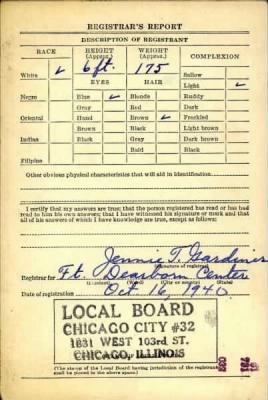 REGISTRAR'S REPORT
DESCRIPTION OF REGISTRANT
RACE HEIGHT (Approx.) WEIGHT (Approx.) COMPLEXION
White ✓ 6 ft. 175 Sallow
EYES HAIR Light ✓
Negro Blue ✓ Blonde Ruddy
Gray Red Dark
Oriental Hazel Brown ✓ Freckled
Brown Black Light brown
Indian Black Gray Dark brown
Bald Black
Filipino
Other obvious physical characteristics that will aid in identification
I certify that my answers are true; that the person registered has read or has had
read to him his own answers; that I have witnessed his signature or mark and that
all of his answers of which I have knowledge are true, except as follows:
Jennie T. Gardiner
(Signature of registrar)
Registrar for Ft. Dearborn Center
(Precinct) (Ward) (City or county) (State)
Date of registration Oct 16, 1940.
LOCAL BOARD
CHICAGO CITY #32
1831 WEST 103rd ST.
CHICAGO, ILLINOIS
(The stamp of the Local Board having jurisdiction of the registrant
shall be placed in the above space.)